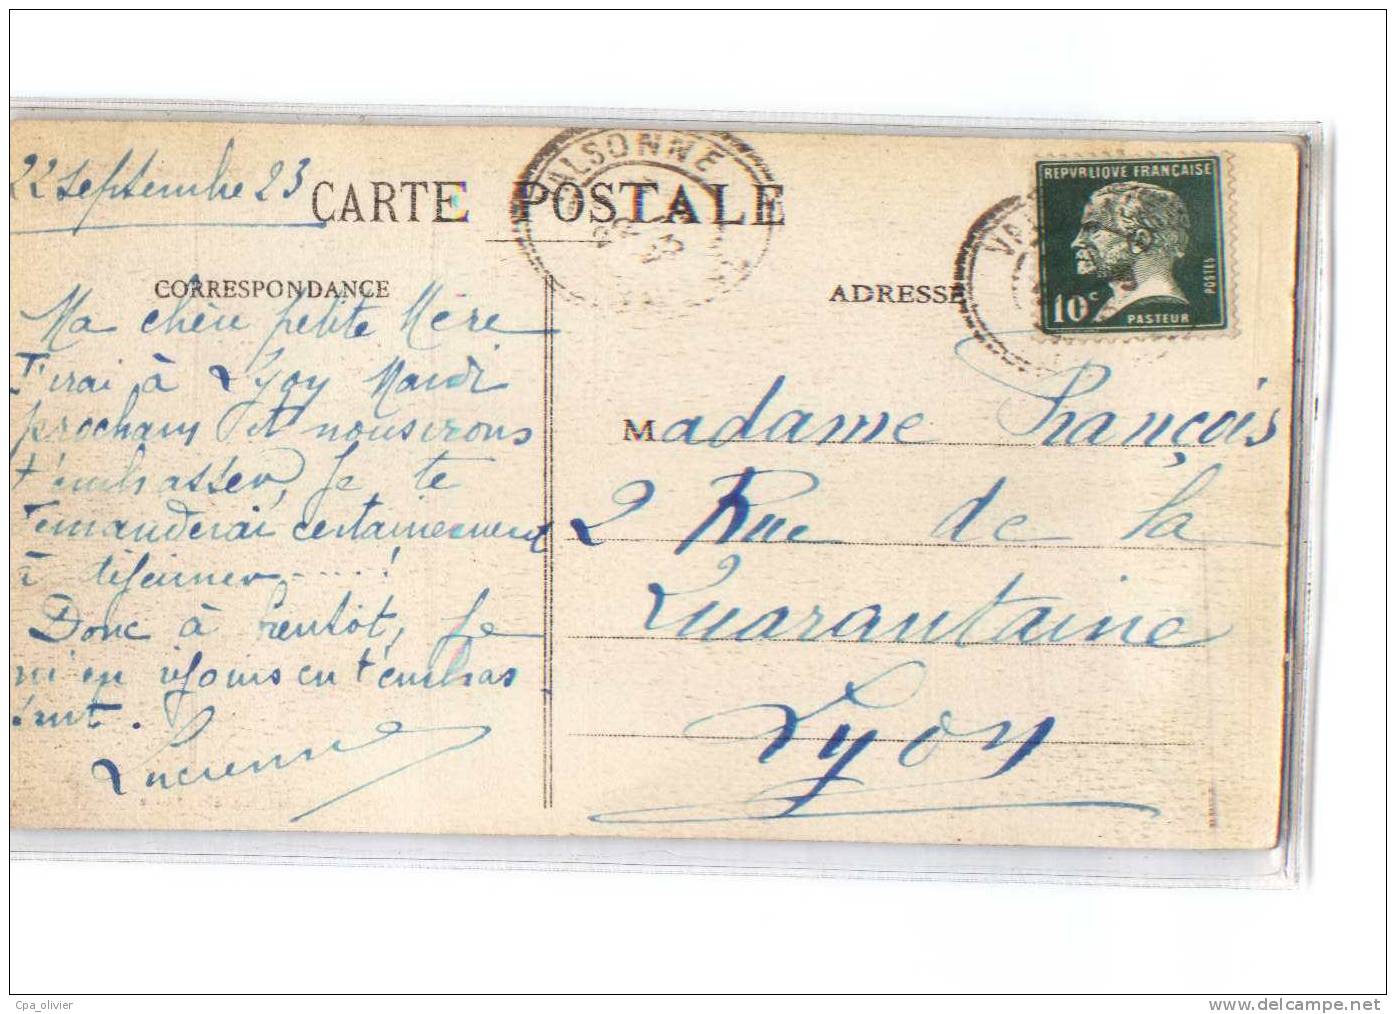 22 septembre 23
CARTE POSTALE
VALSONNE
CORRESPONDANCE
Ma chère petite Mère
J'irai à Lyon Mardi
prochain et nous irons
t'embrasser, Je te
demanderai certainement
à déjeuner.....!
Donc à bientôt, Je
m'en réjouis en t'embras
sant.
Lucienne
ADRESSE
REPVBLIQVE FRANÇAISE
10c
PASTEUR
POSTES
Madame François
2 Rue de la
Quarantaine
Lyon
Cpa_olivier
www.delcampe.net